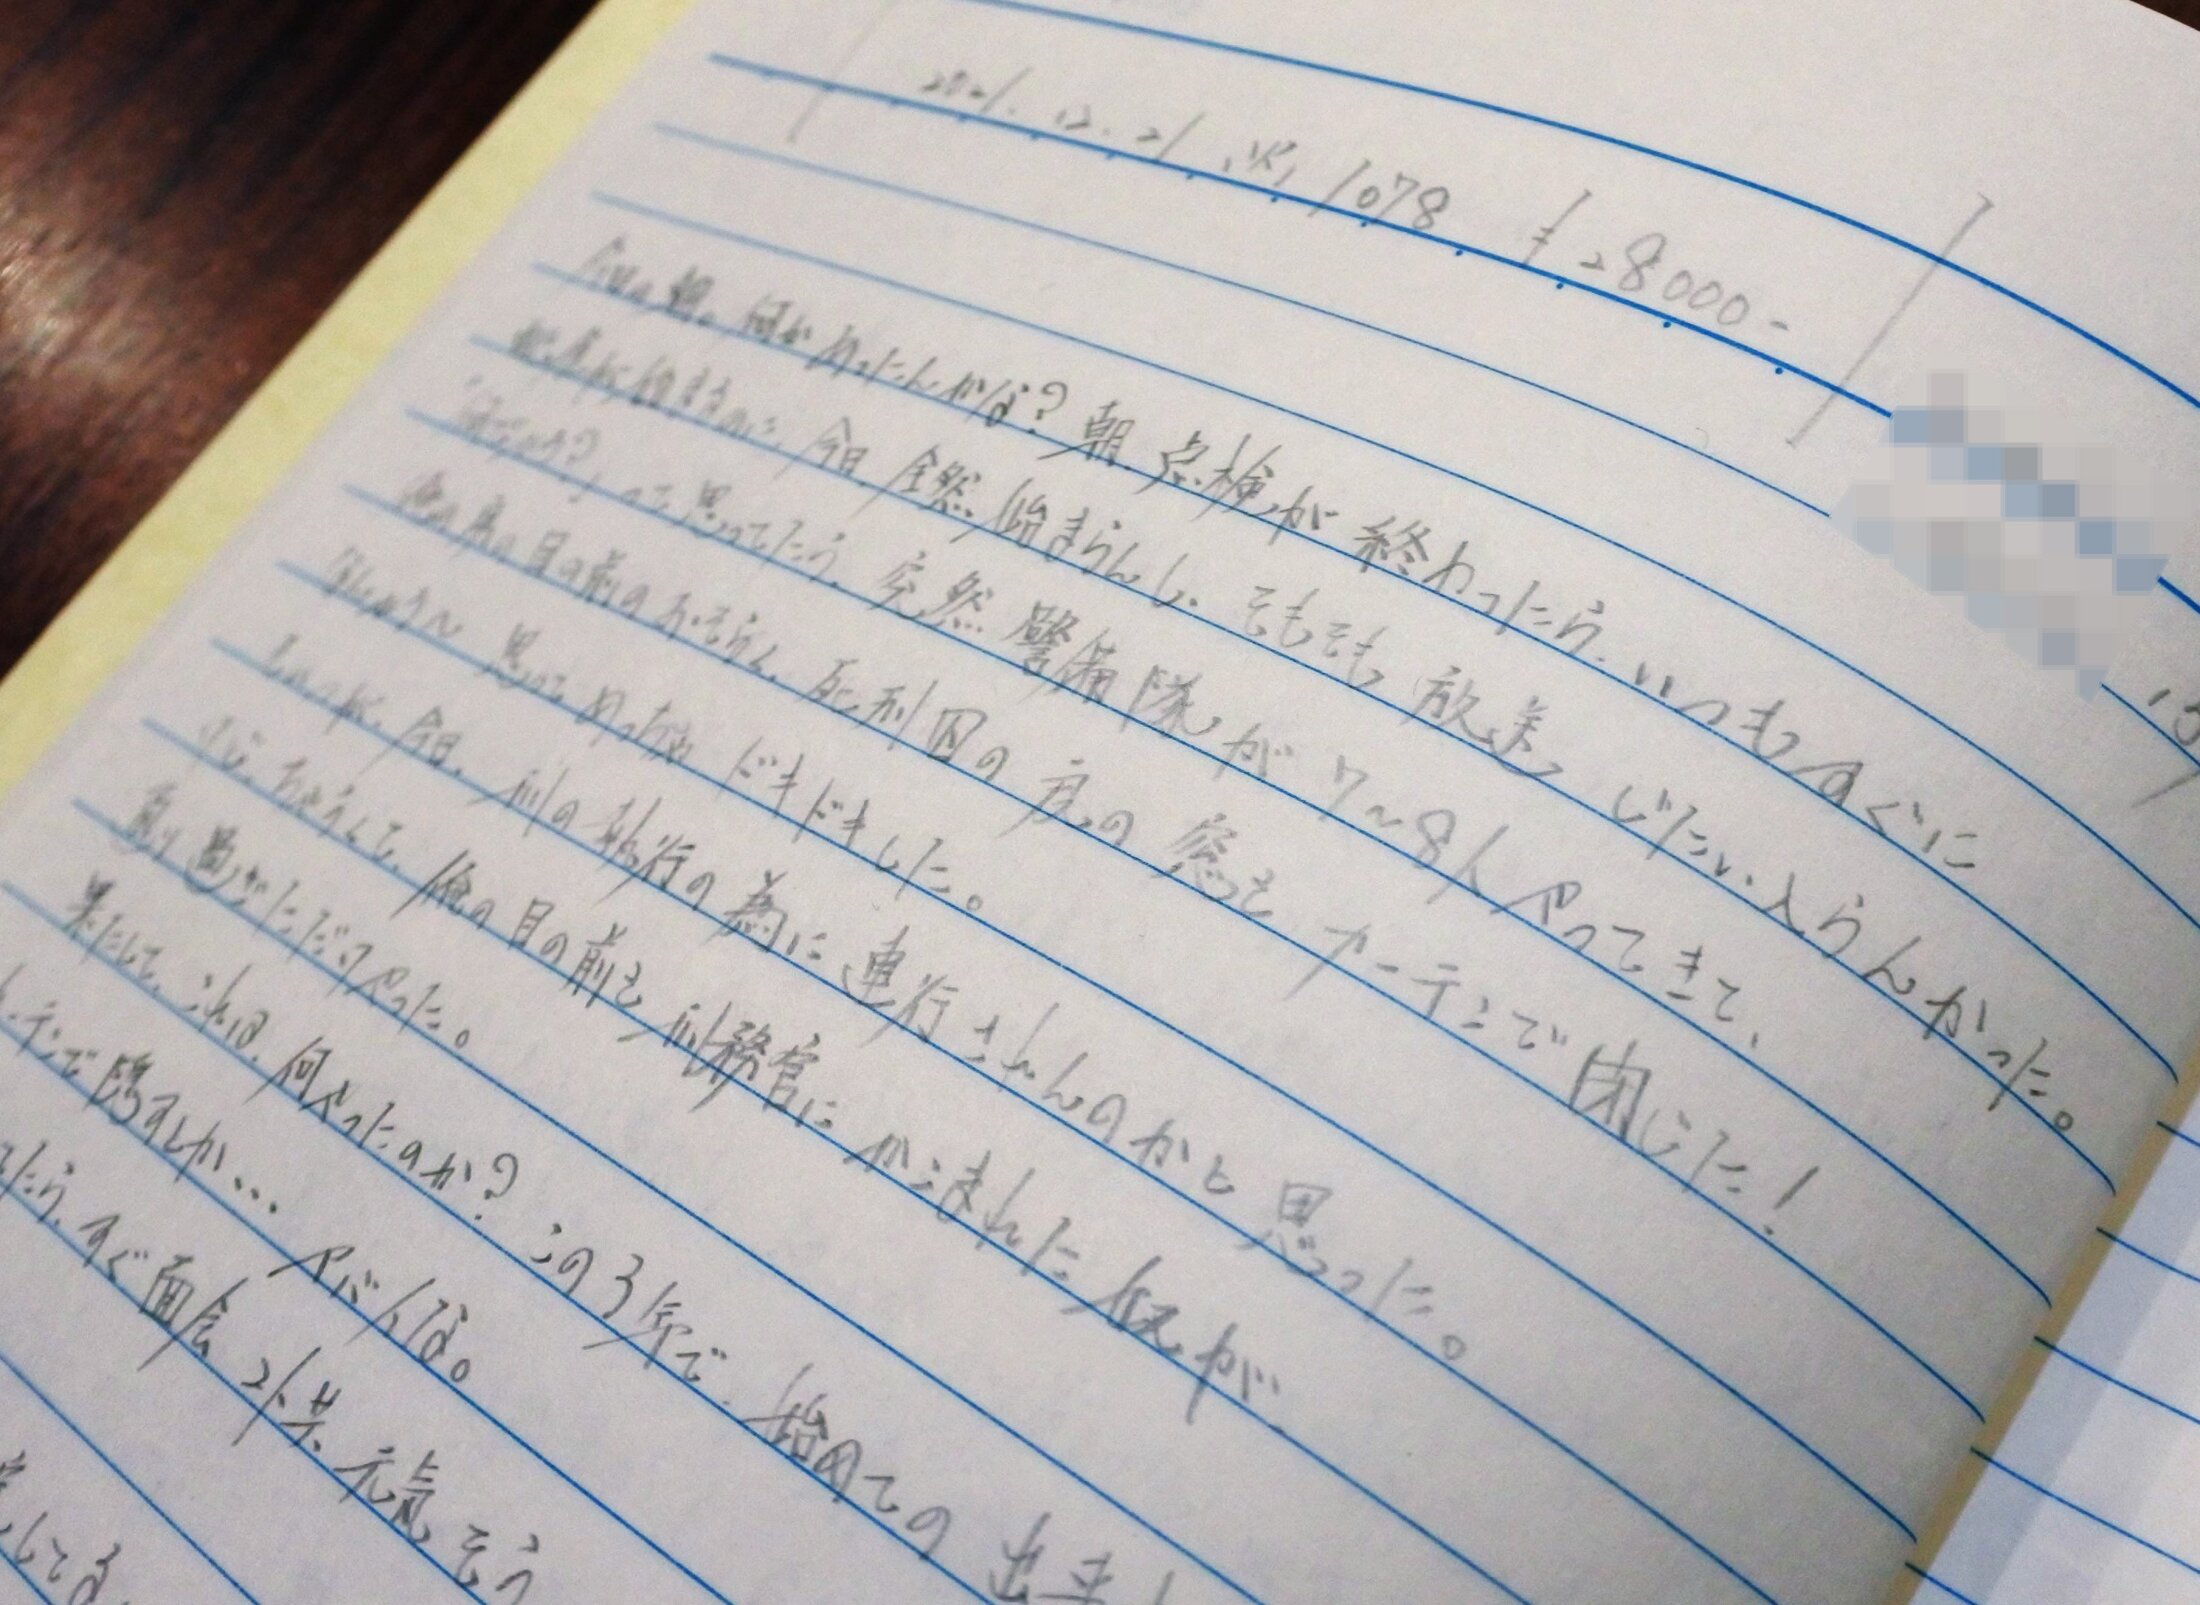 2021.12.21 (火) 1078 ¥28000-
今日の朝。何かあったんかな？朝、点検が終わったら、いつもすぐに
が始まるのに、今日、全然始まらんし、そもそも放送じたい入らんかった。
って思ってたら、突然警備隊が7~8人やってきて、
俺の房の目の前のおそらく、死刑囚の房の窓をカーテンで閉じた！
思って めっちゃ ドキドキした。
今日、刑の執行の為に連行されんのかと思った。
俺の目の前を刑務官にかこまれた 奴が
通り過ぎただけやった。
果たして、これは、何やったのか？この3年で、始めての出来
テンで隠すとか… ヤバイな。
たら、すぐ面会 2人共、元気そう
してる。